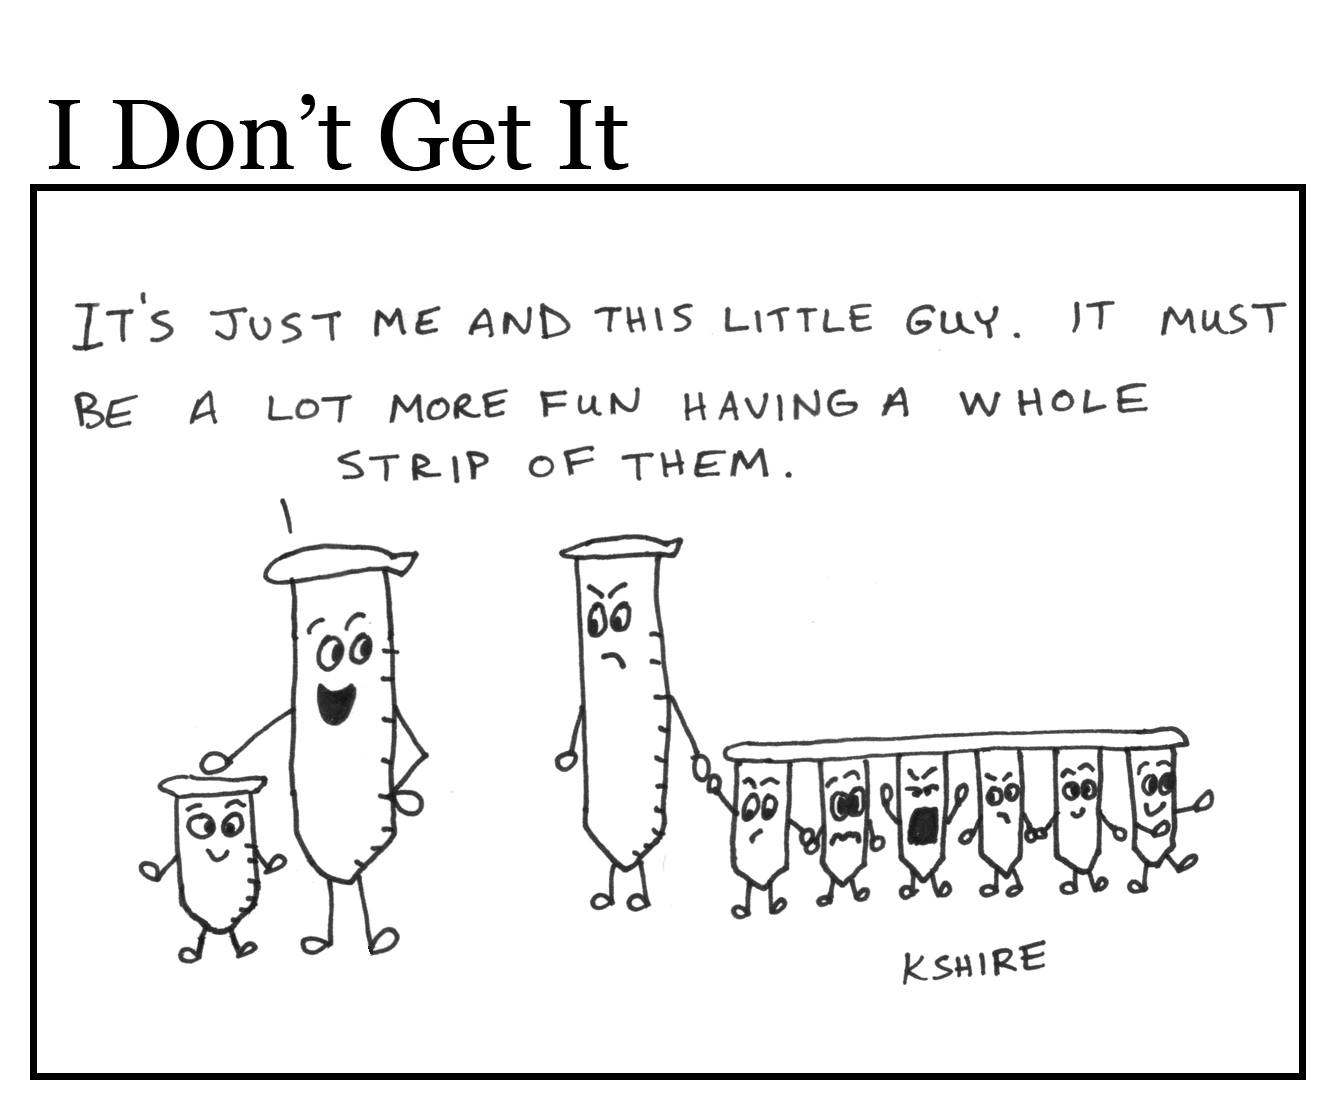 I Don’t Get It
IT'S JUST ME AND THIS LITTLE GUY. IT MUST
BE A LOT MORE FUN HAVING A WHOLE
STRIP OF THEM.
KSHIRE